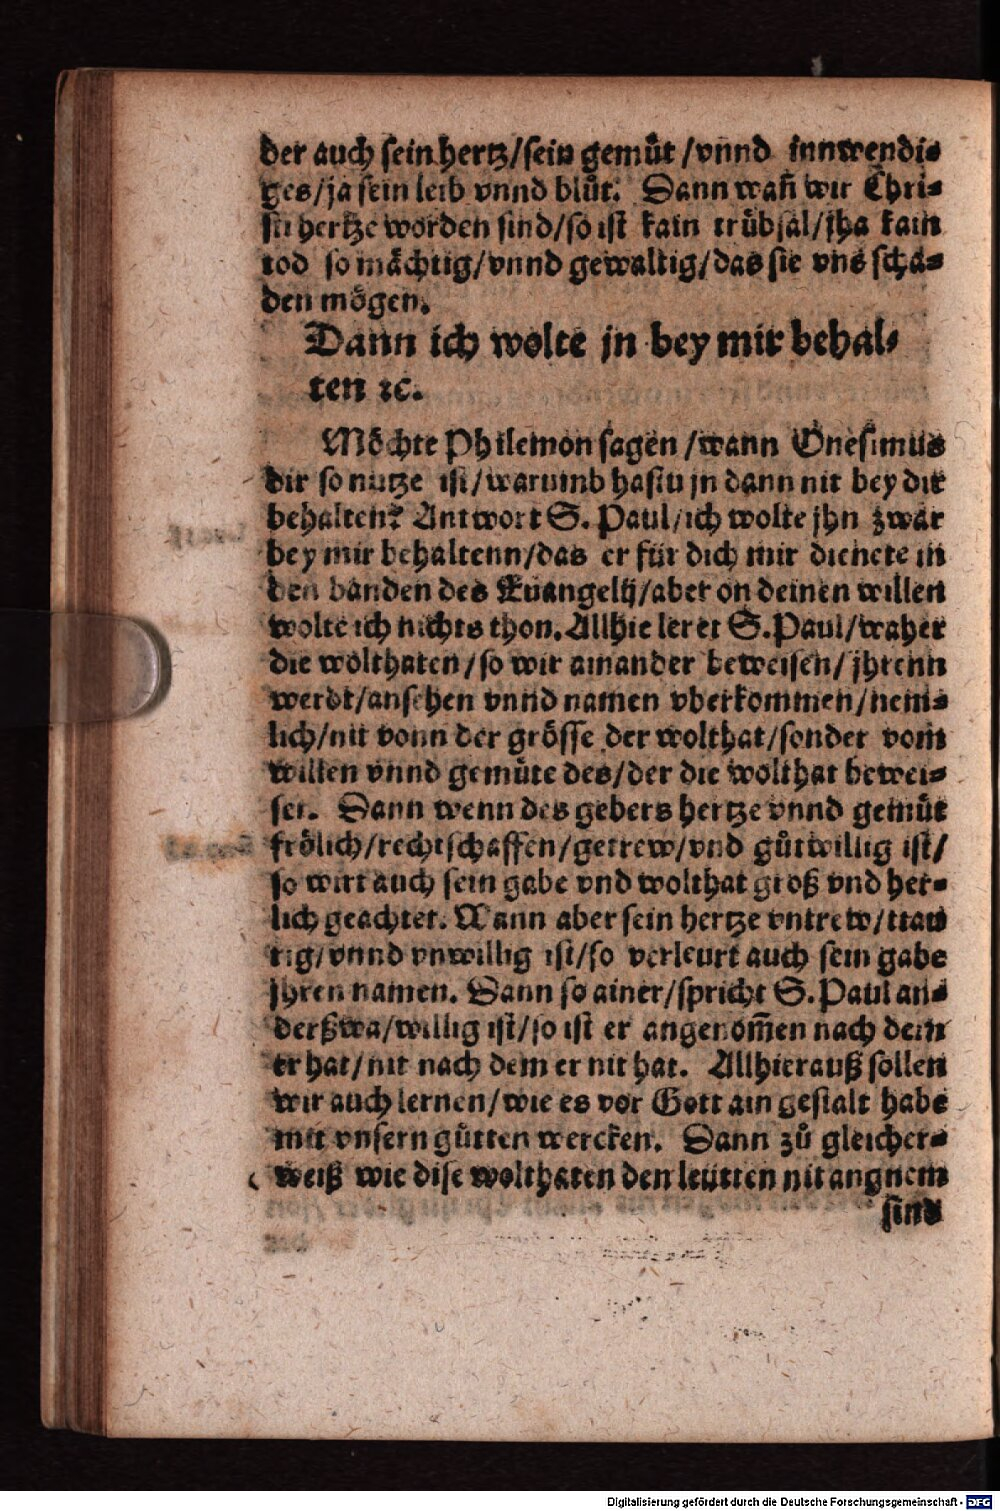 der auch sein hertz/sein gemuͤt/vnnd innwendi⸗
ges/ja sein leib vnnd bluͤt. Dann wañ wir Chri⸗
sti hertze worden sind/so ist kain truͤbsal/jha kain
tod so maͤchtig/vnnd gewaltig/das sie vns scha⸗
den moͤgen.
Dann ich wolte jn bey mir behal⸗
ten ꝛc.
Moͤchte Philemon sagen/wann Onesimus
dir so nutze ist/warumb hastu jn dann nit bey dir
behalten? Antwort S. Paul/ich wolte jhn zwar
bey mir behaltenn/das er fuͤr dich mir dienete in
den banden des Euangelij/aber on deinen willen
wolte ich nichts thon. Allhie leret S. Paul/waher
die wolthaten/so wir ainander beweisen/jhrenn
werdt/ansehen vnnd namen vberkommen/nem⸗
lich/nit vonn der groͤsse der wolthat/sonder vom
willen vnnd gemuͤte des/der die wolthat bewei⸗
set. Dann wenn des gebers hertze vnnd gemuͤt
froͤlich/rechtschaffen/getrew/vnd guͤtwillig ist/
so wirt auch sein gabe vnd wolthat groß vnd her⸗
lich geachtet. Wann aber sein hertze vntrew/traw
rig/vnnd vnwillig ist/so verleurt auch sein gabe
jhren namen. Dann so ainer/spricht S. Paul an⸗
derßwa/willig ist/so ist er angenom̃en nach dem
er hat/nit nach dem er nit hat. Allhierauß sollen
wir auch lernen/wie es vor Gott ain gestalt habe
mit vnsern guͤtten wercken. Dann zuͤ gleicher⸗
weiß wie dise wolthaten den leütten nit angnem
sind
Digitalisierung gefördert durch die Deutsche Forschungsgemeinschaft - DFG